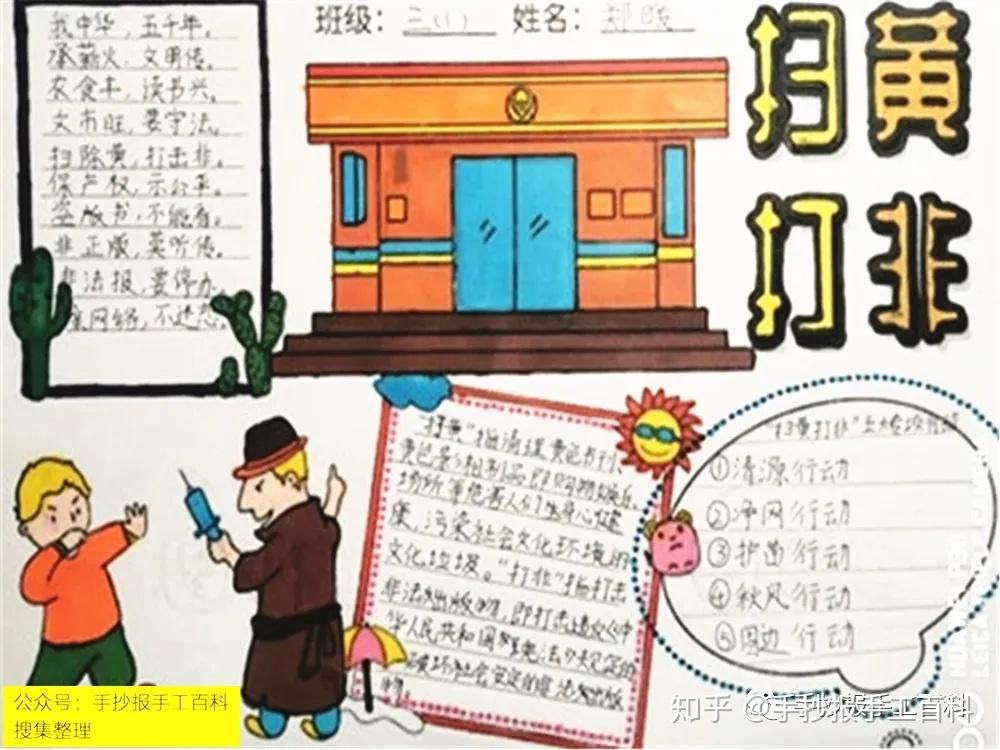 班级：三(1) 姓名：郑
扫黄
打非
我中华，五千年。
承薪火，文明传。
衣食丰，读书兴。
文市旺，要守法。
扫除黄，打击非。
保产权，示公平。
盗版书，不能看。
非正版，莫听传。
非法报，要停办。
网络，不迷恋。
"扫黄"指清理黄色书刊、
黄色
场所等危害人们身心健
康，污染社会文化环境的
文化垃圾。"打非"指打击
非法出版物，即打击违反《中
华人民共和国宪法》规定的
破坏社会安定的非法出版
物。
"扫黄打非"五大专项行动
①清源行动
②净网行动
③护苗行动
④秋风行动
⑤固边行动
公众号：手抄报手工百科
搜集整理
知乎 @手抄报手工百科